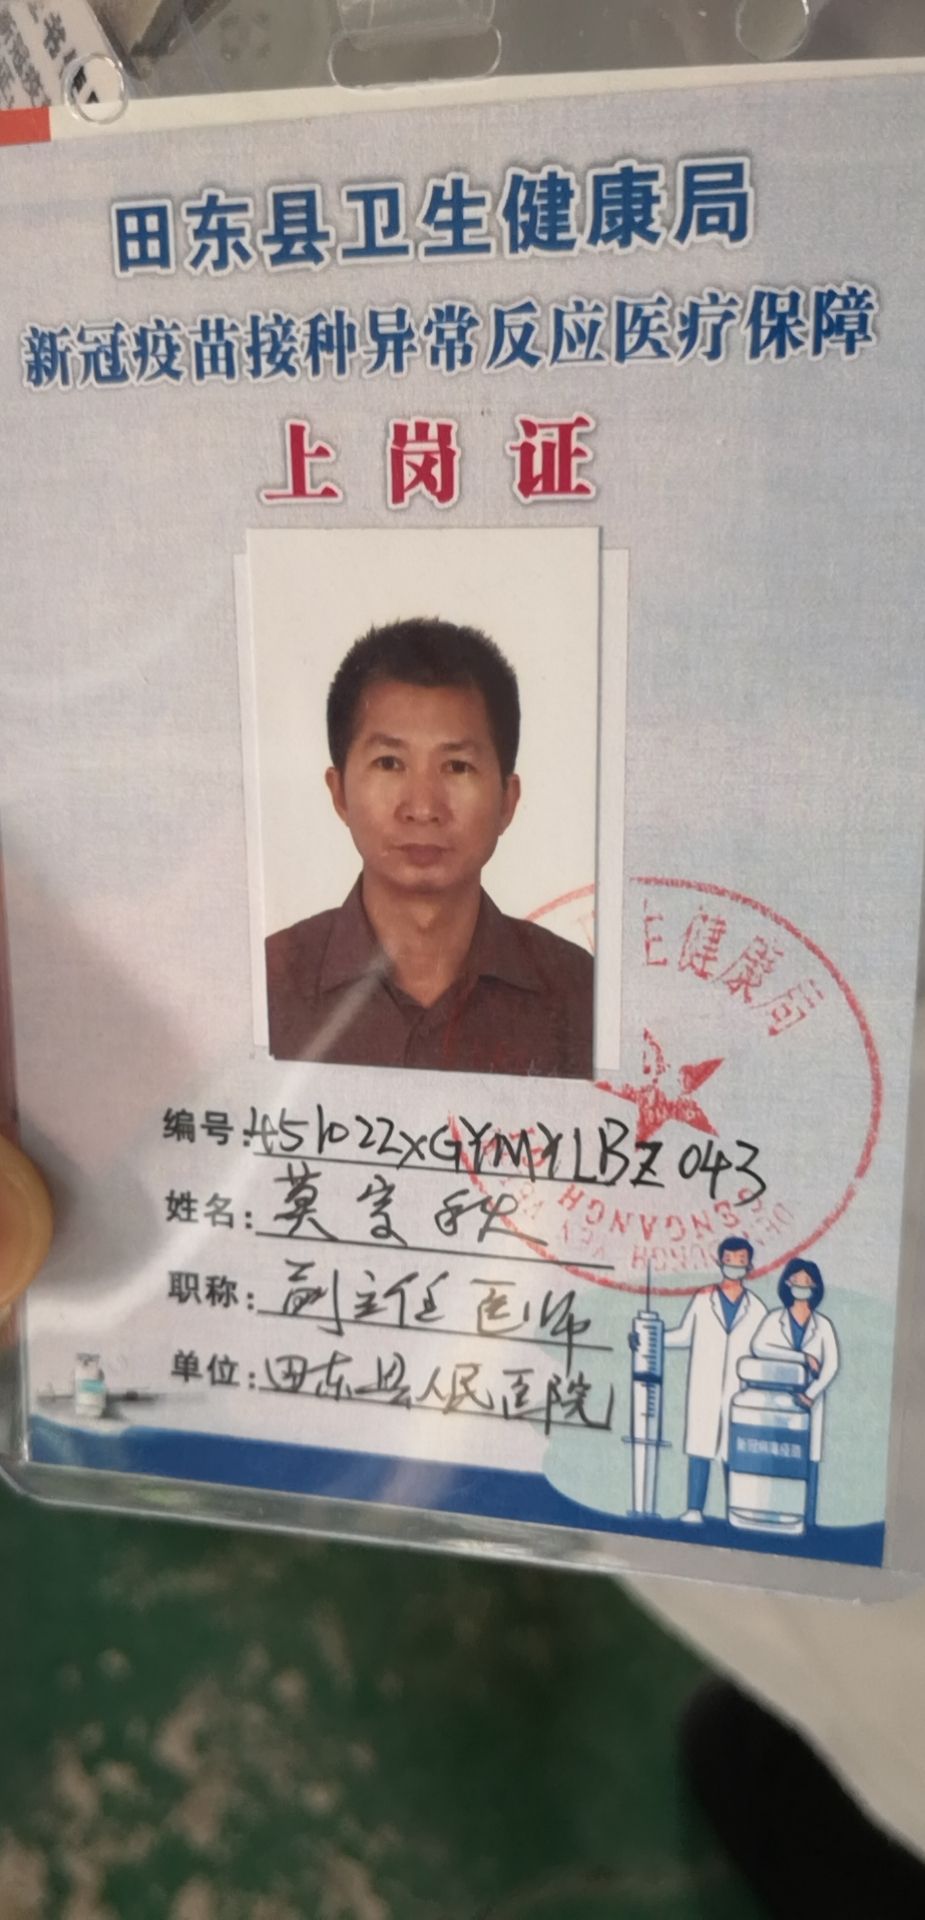 田东县卫生健康局
新冠疫苗接种异常反应医疗保障
上岗证
生健康局
编号:451022XGYMYLBZ043
姓名:莫
职称:副主任医师
单位:田东县人民医院
新冠病毒疫苗